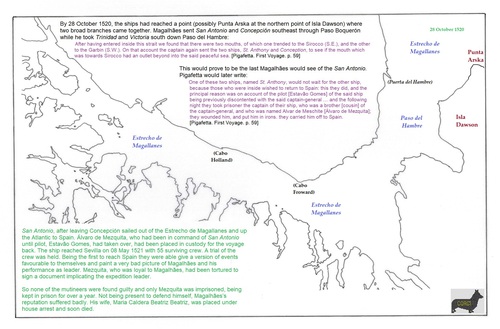 By 28 October 1520, the ships had reached a point (possibly Punta Arska at the northern point of Isla Dawson) where
two broad branches came together. Magalhães sent San Antonio and Concepción southeast through Paso Boquerón
while he took Trinidad and Victoria south down Paso del Hambre:
After having entered inside this strait we found that there were two mouths, of which one trended to the Sirocco (S.E.), and the other
to the Garbin (S.W.). On that account the captain again sent the two ships, St. Anthony and Conception, to see if the mouth which
was towards Sirocco had an outlet beyond into the said peaceful sea. [Pigafetta. First Voyage. p. 59]
This would prove to be the last Magalhães would see of the San Antonio.
Pigafetta would later write:
One of these two ships, named St. Anthony, would not wait for the other ship,
because those who were inside wished to return to Spain: this they did, and the
principal reason was on account of the pilot [Estavão Gomes] of the said ship
being previously discontented with the said captain-general ... and the following
night they took prisoner the captain of their ship, who was a brother [cousin] of
the captain-general, and who was named Alvar de Meschite [Álvaro de Mezquita];
they wounded him, and put him in irons. they carried him off to Spain.
[Pigafetta. First Voyage. p. 59]
28 October 1520
Estrecho de
Magallanes
Punta
Arska
(Puerta del Hambre)
Paso del
Hambre
Isla
Dawson
Estrecho de
Magallanes
(Cabo
Holland)
(Cabo
Froward)
Estrecho de
Magallanes
San Antonio, after leaving Concepción sailed out of the Estrecho de Magallanes and up
the Atlantic to Spain. Álvaro de Mezquita, who had been in command of San Antonio
until pilot, Estavão Gomes, had taken over, had been placed in custody for the voyage
back. The ship reached Sevilla on 06 May 1521 with 55 surviving crew. A trial of the
crew was held. Being the first to reach Spain they were able give a version of events
favourable to themselves and paint a very bad picture of Magalhães and his
performance as leader. Mezquita, who was loyal to Magalhães, had been tortured to
sign a document implicating the expedition leader.
So none of the mutineers were found guilty and only Mezquita was imprisoned, being
kept in prison for over a year. Not being present to defend himself, Magalhães's
reputation suffered badly. His wife, Maria Caldera Beatriz Beatriz, was placed under
house arrest and soon died.